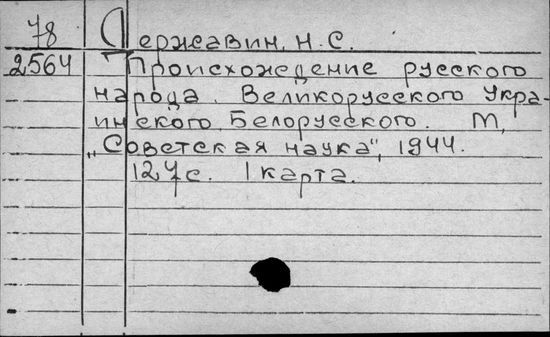 78 Державин, Н. С.
2564 Происхождение русского
народа. Великорусского Укра-
инского, Белорусского. М,
„Советская наука", 1944.
127 с. 1 карта.